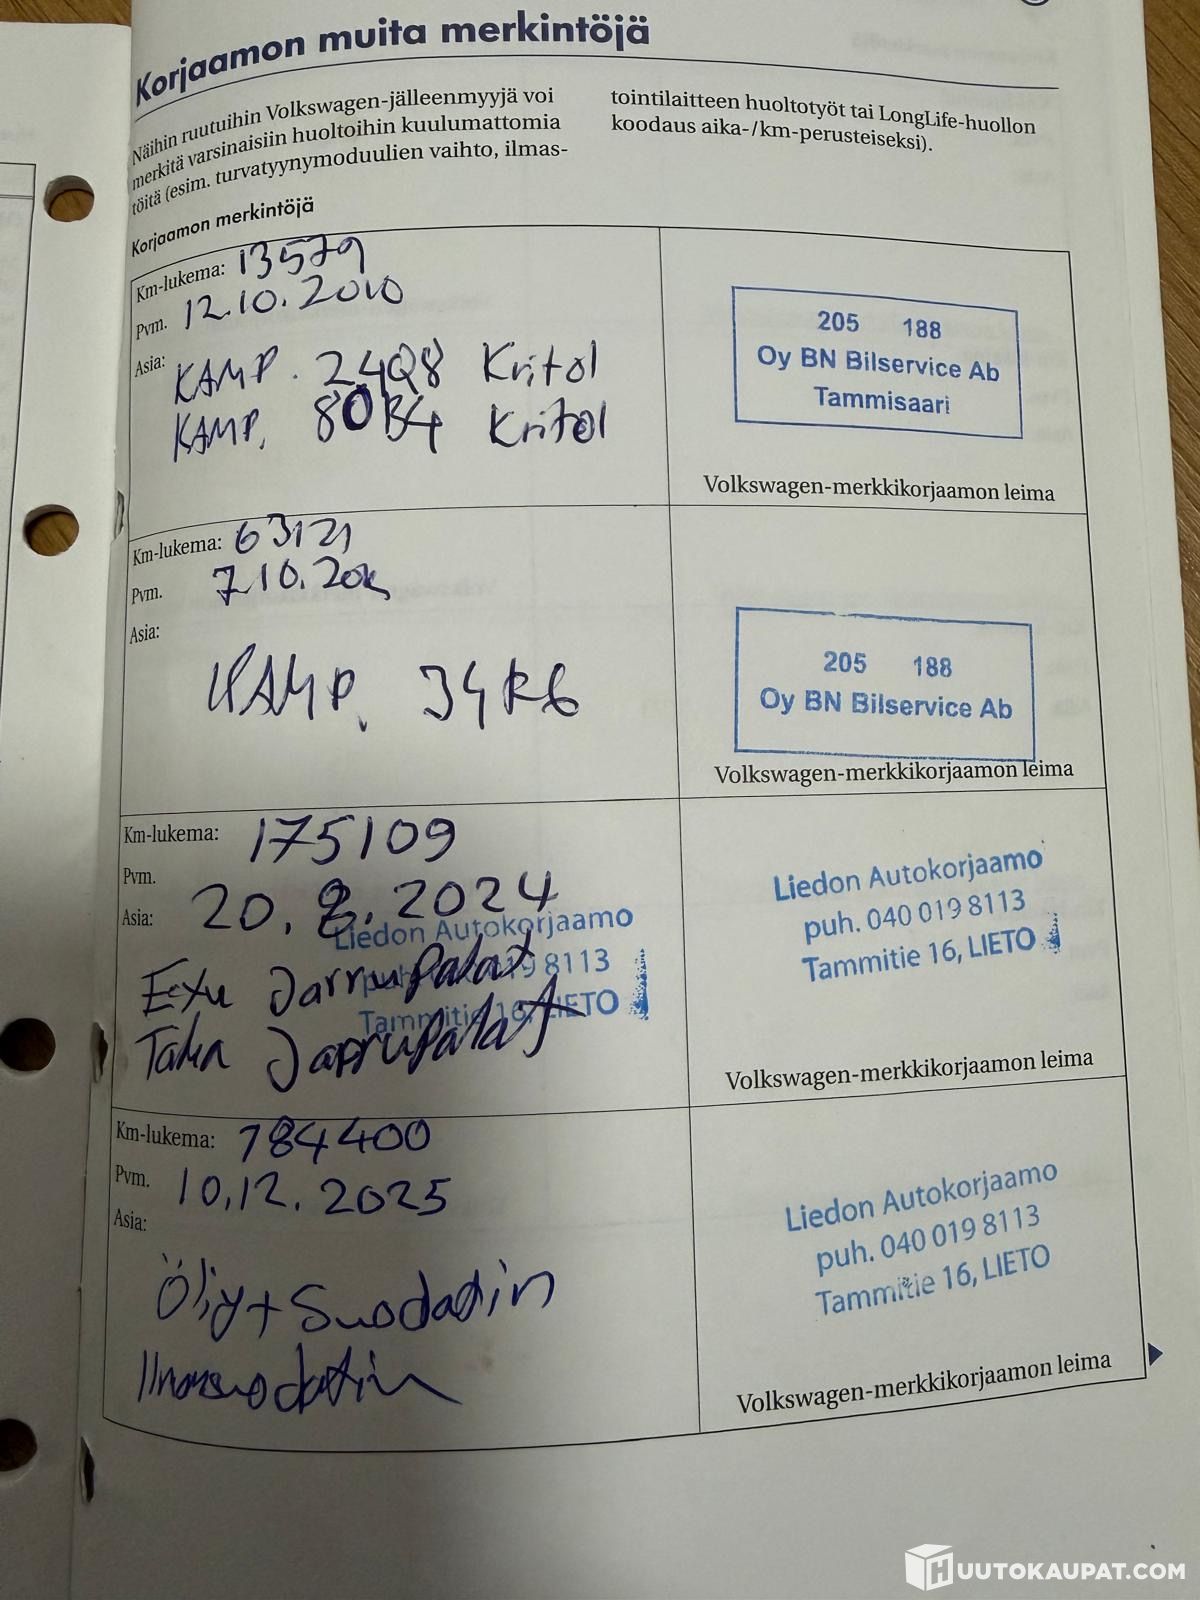 Korjaamon muita merkintöjä
Näihin ruutuihin Volkswagen-jälleenmyyjä voi
merkitä varsinaisiin huoltoihin kuulumattomia
töitä (esim. turvatyynymoduulien vaihto, ilmas-
tointilaitteen huoltotyöt tai LongLife-huollon
koodaus aika-/km-perusteiseksi).
Korjaamon merkintöjä
Km-lukema: 13579
Pvm. 12.10.2010
Asia: KAMP. 24Q8 Kritol
KAMP. 80B4 Kritol
205 188
Oy BN Bilservice Ab
Tammisaari
Volkswagen-merkkikorjaamon leima
Km-lukema: 63121
Pvm. 7.10.
Asia:
KAMP. 34R6
205 188
Oy BN Bilservice Ab
Volkswagen-merkkikorjaamon leima
Km-lukema: 175109
Pvm.
Asia: 20.8.2024
Liedon Autokorjaamo
puh. 040 019 8113
Tammitie 16, LIETO
Etu Jarrupalat
Taka Jarrupalat
Liedon Autokorjaamo
puh. 040 019 8113
Tammitie 16, LIETO
Volkswagen-merkkikorjaamon leima
Km-lukema: 184400
Pvm. 10.12.2025
Asia:
Öljy + Suodatin
Ilmansuodatin
Liedon Autokorjaamo
puh. 040 019 8113
Tammitie 16, LIETO
Volkswagen-merkkikorjaamon leima
HUUTOKAUPAT.COM